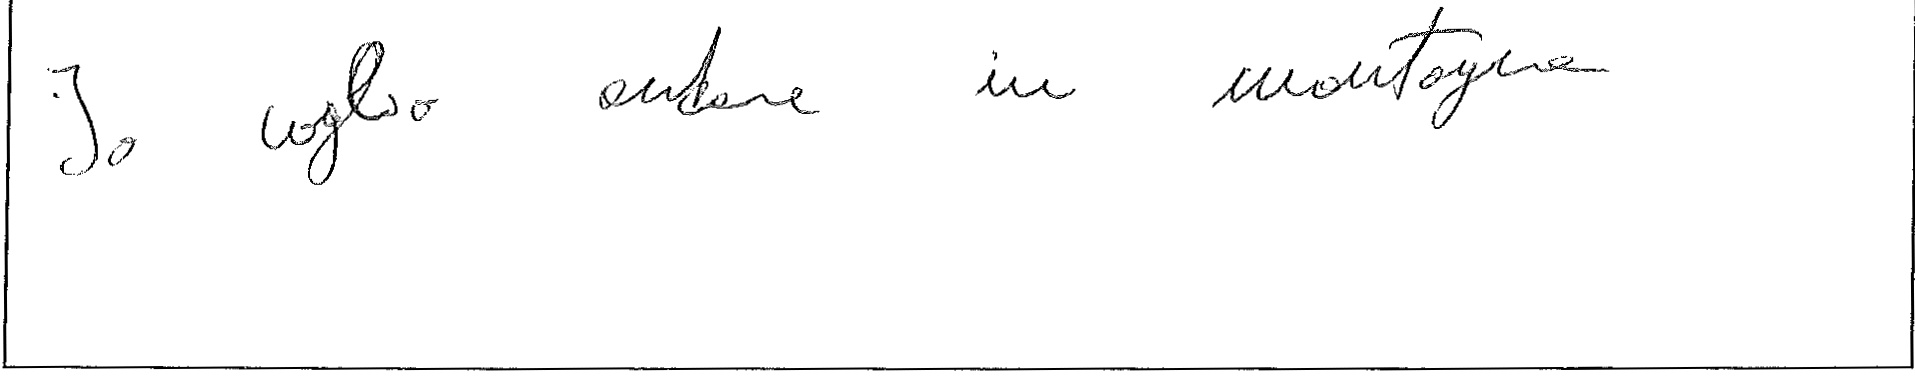 Io voglio andare in montagna